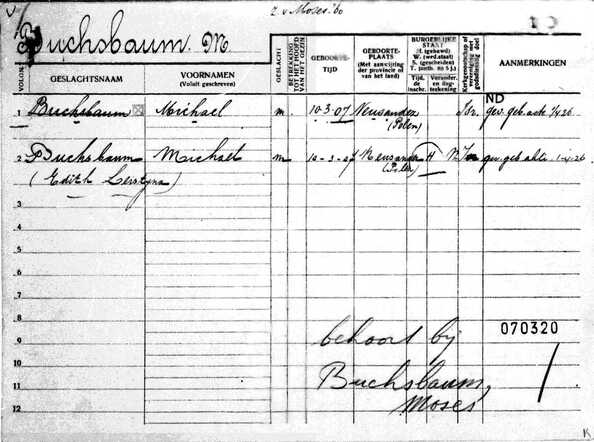 z. v. Moses. '80
Buchsbaum. M
VOLGNo.
GESLACHTSNAAM
VOORNAMEN
(Voluit geschreven)
GESLACHT
BETREKKING
TOT HET HOOFD
VAN HET GEZIN
GEBOORTE-
TIJD
GEBOORTE-
PLAATS
(Met aanwijzing
der provincie of
van het land)
BURGERLIJKE
STAAT
H. (gehuwd)
W. (wed.staat)
S. (gescheiden)
T. (ontb. na 5 j.)
Tijd.
de
inschr.
AANMERKINGEN
ND
1 Buchsbaum Michael m. 10-3-07 Neusandez
(Polen)
gev. geb. acte 1/4 26
2 Buchsbaum Michael m 10-3-07
H gev. geb akte 1-4-26
(Edith
3
4
5
6
7
8
9
070320
behoort bij
10
11 Buchsbaum,
Moses
12
K